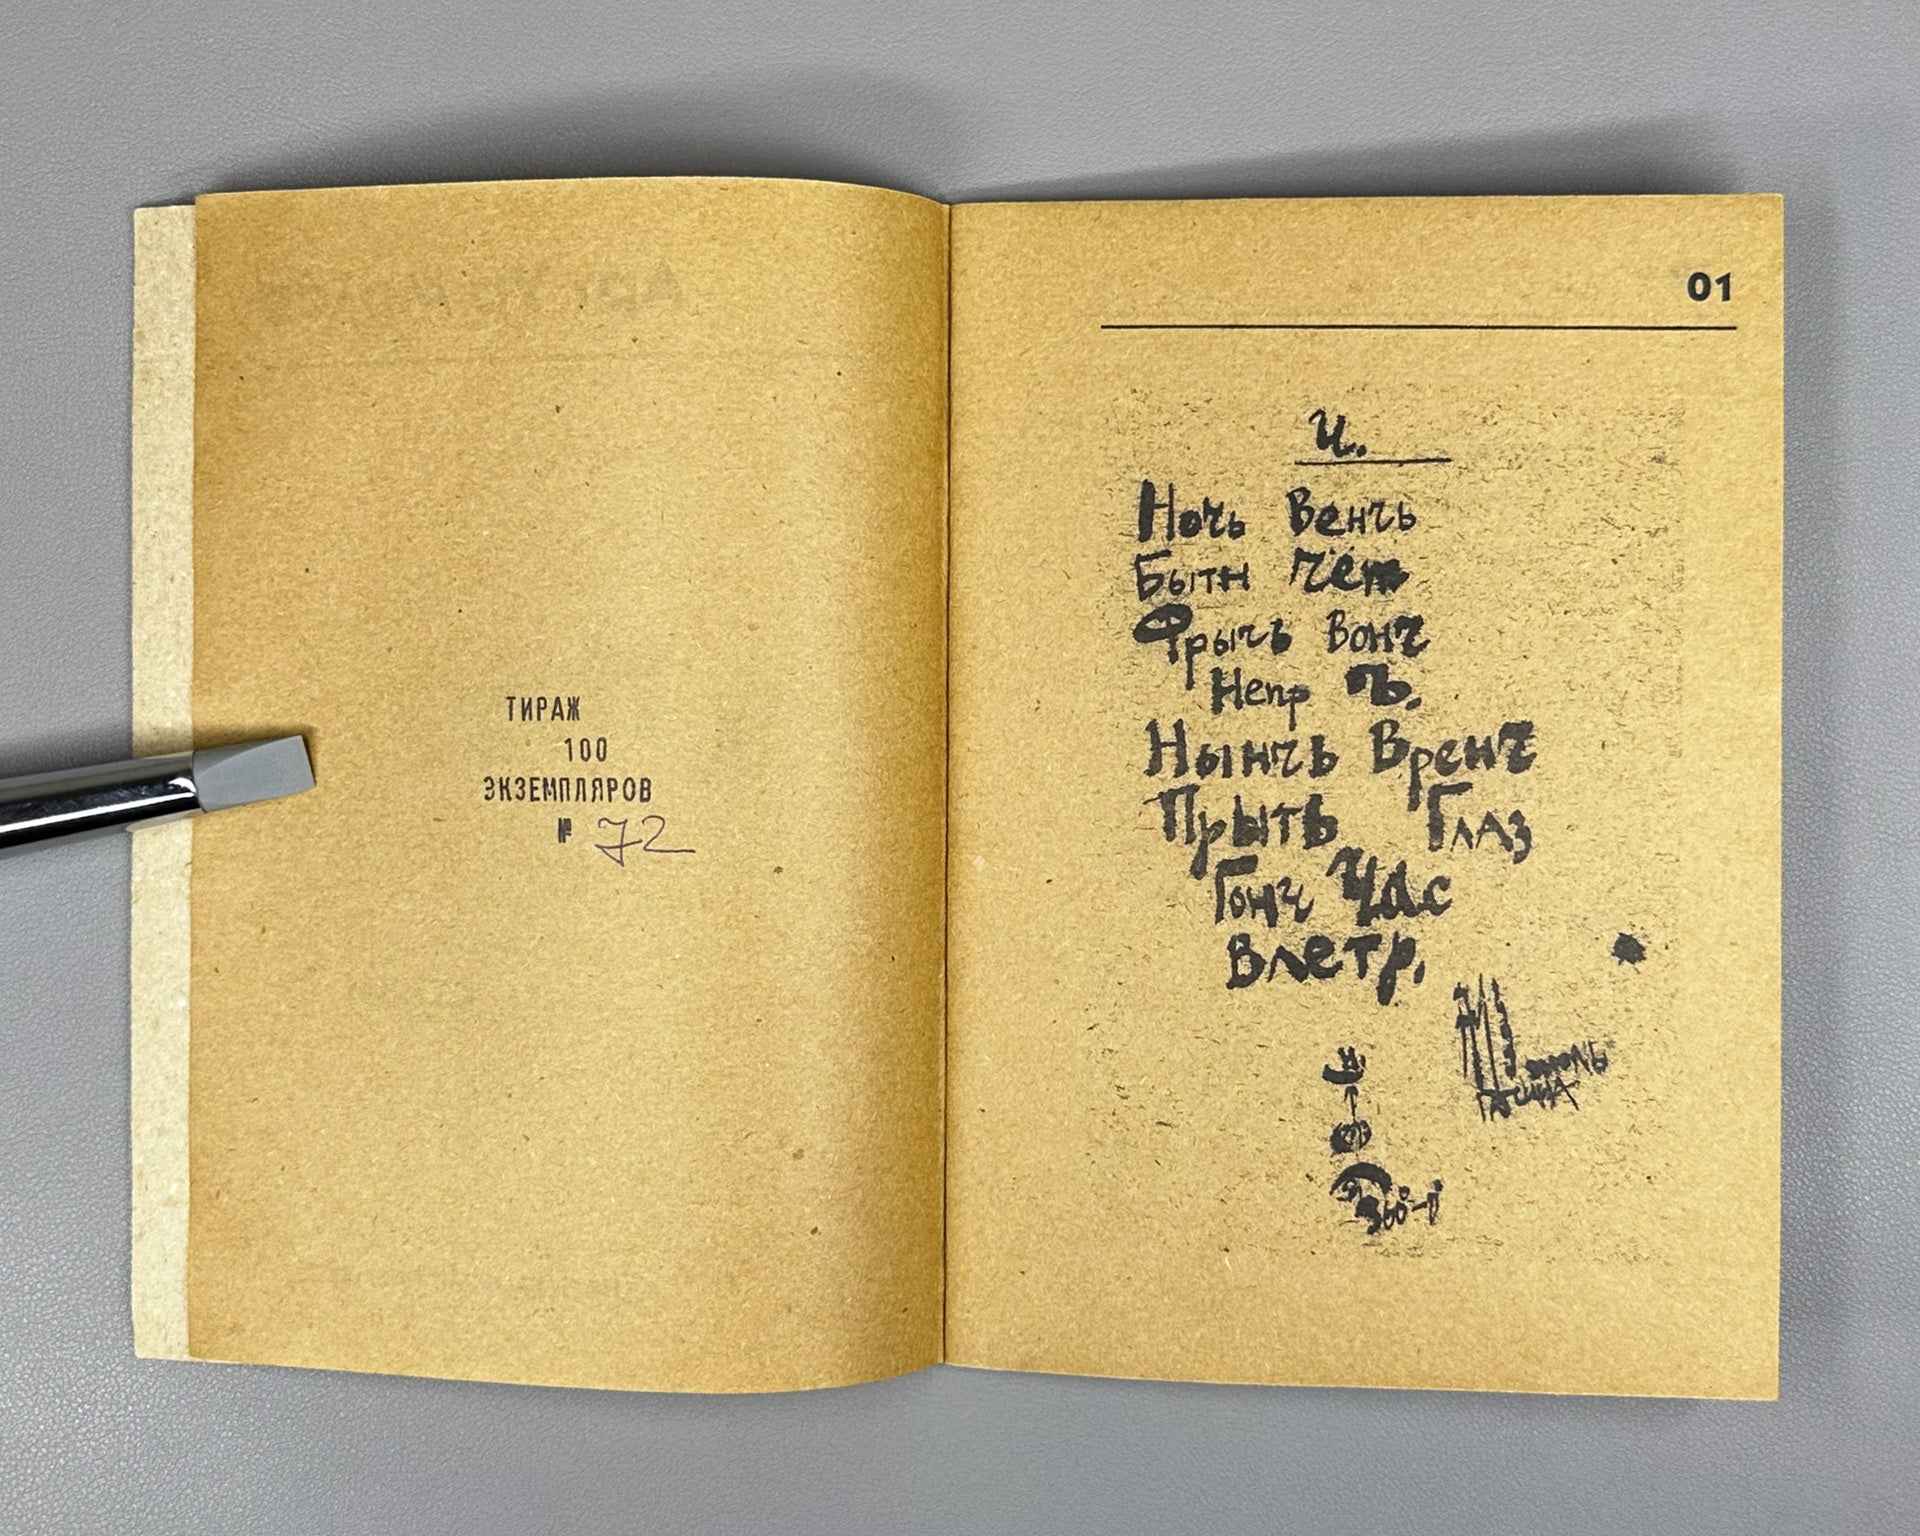 ТИРАЖ
100
ЭКЗЕМПЛЯРОВ
№ 72
01
и.
Ночь Венчь
Бытн Чёт
Фрычь вонч
Непр Ъ.
Нынчь Вренч
Прыть Глаз
Гонч Час
Влетр.